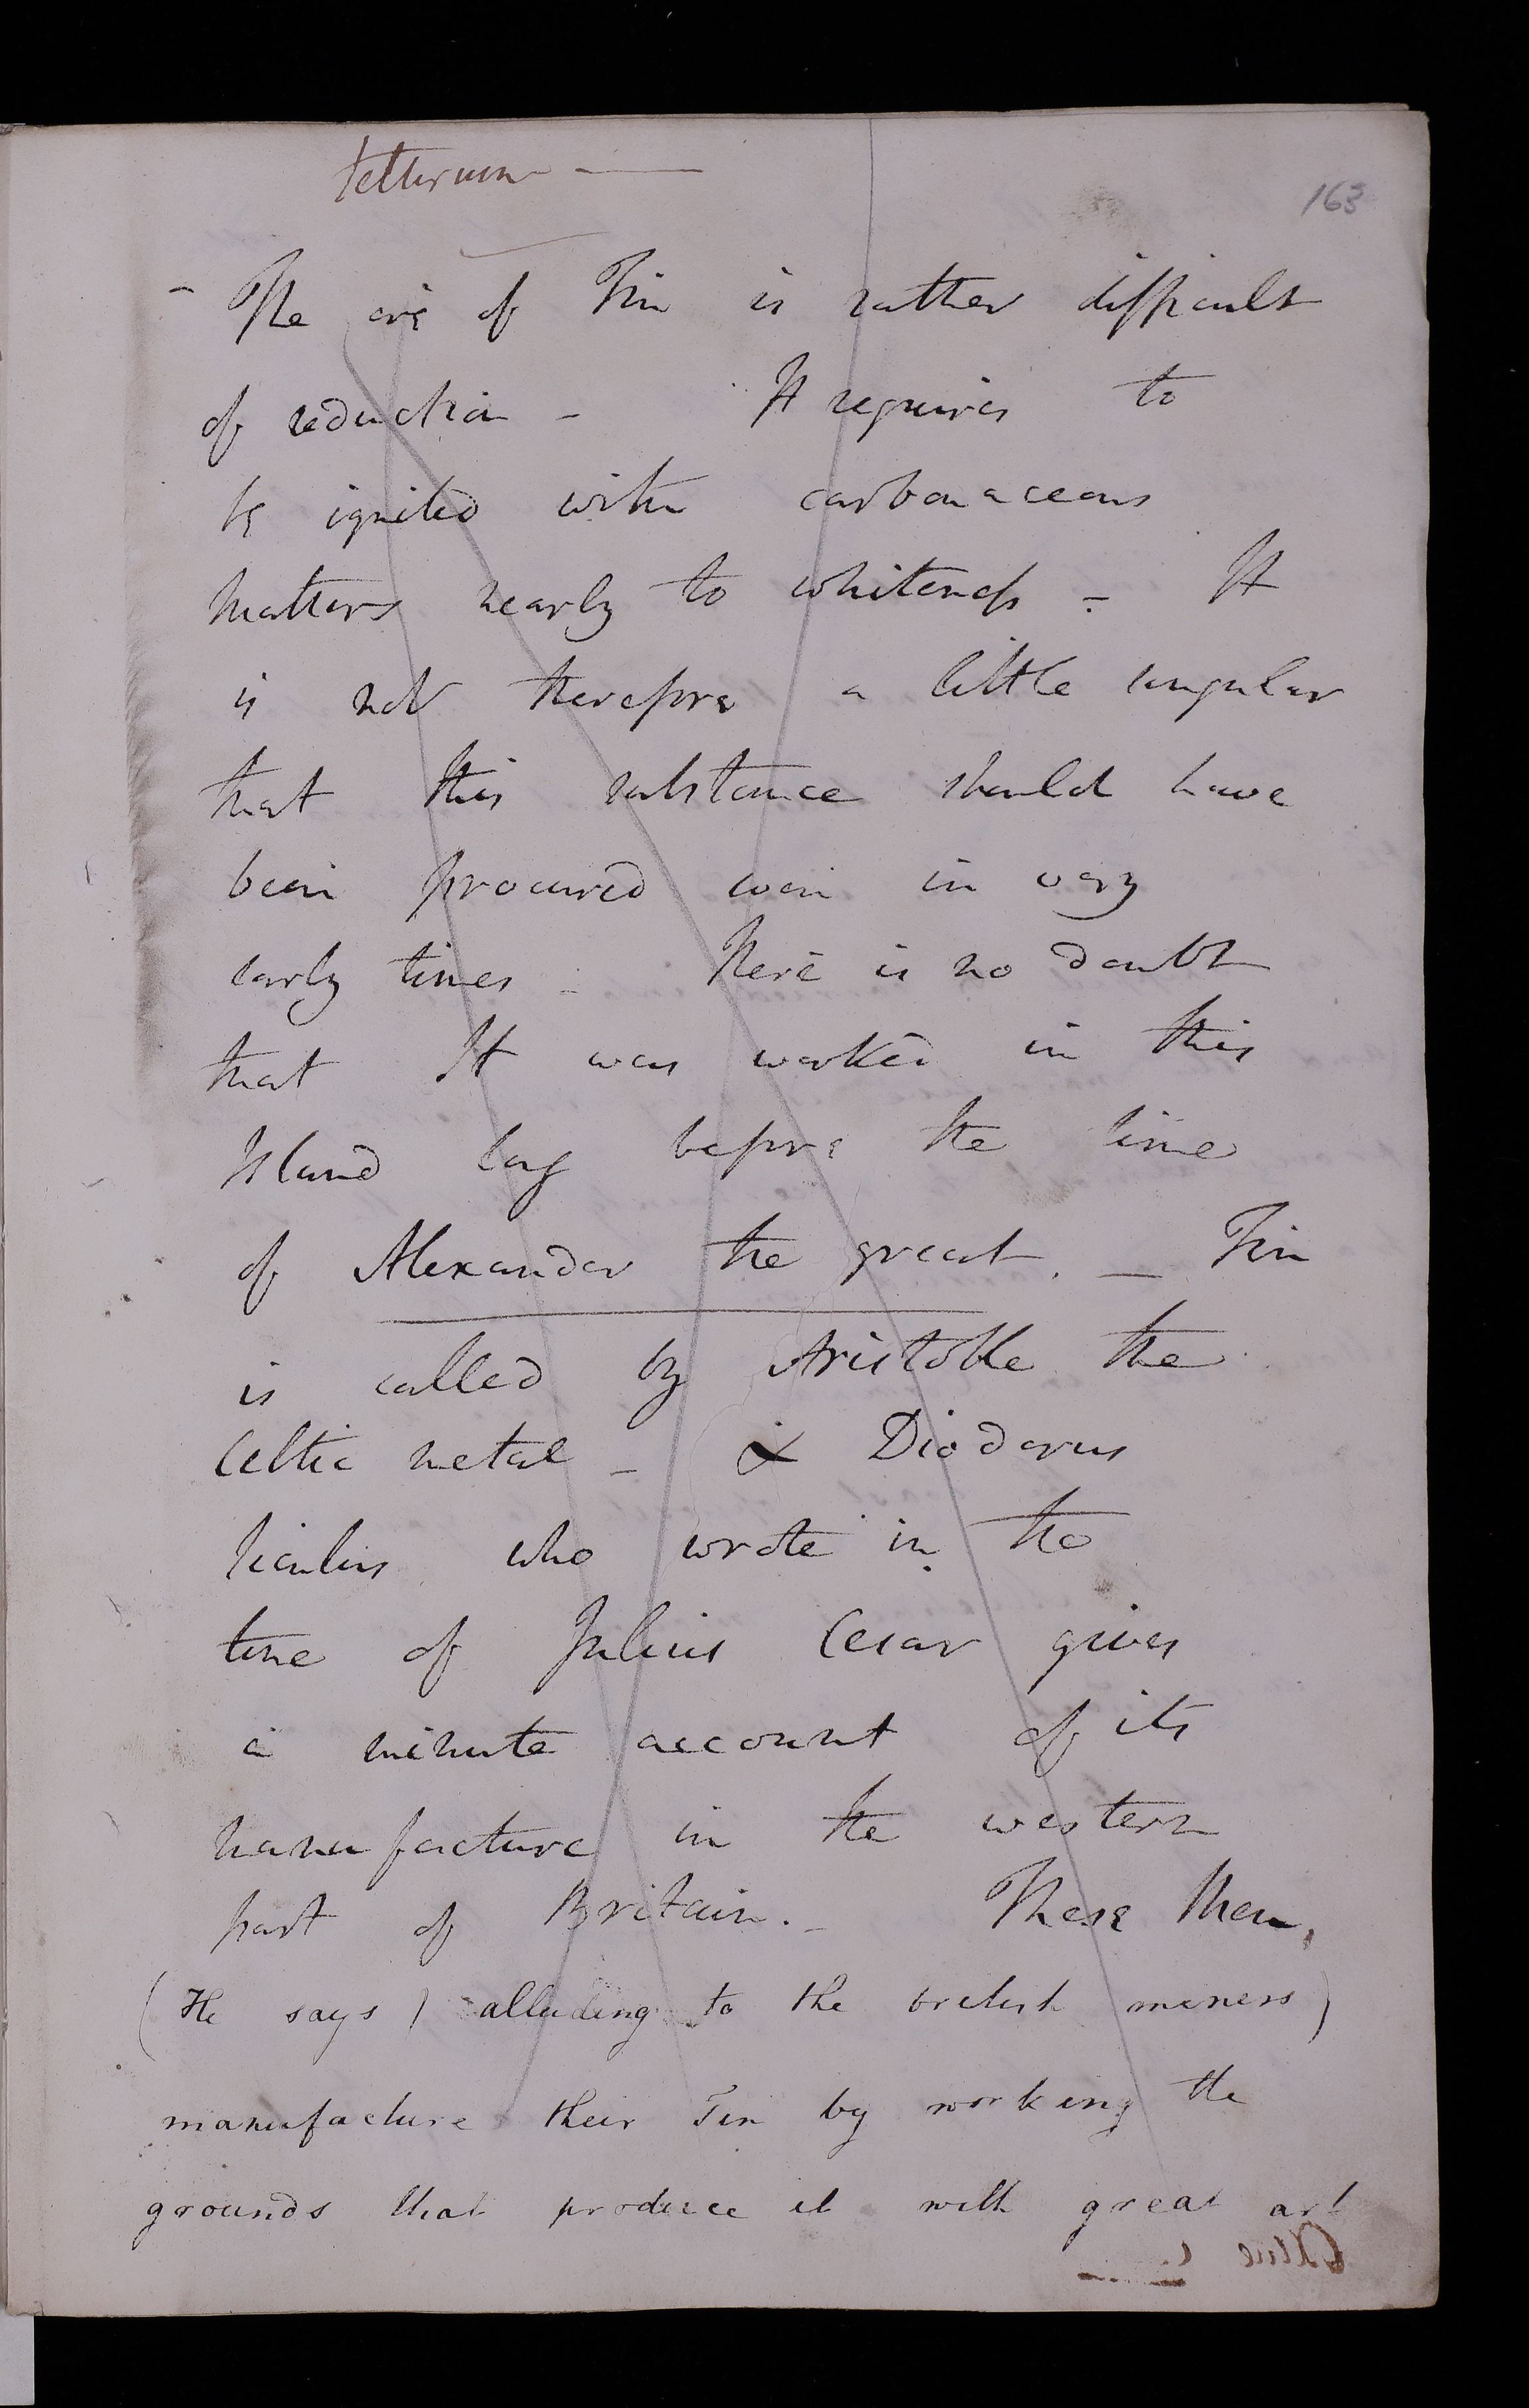 163
- The ore of Tin is rather difficult
of reduction - It requires to
be ignited with carbonaceous
matters nearly to whiteness - It
is not therefore a little singular
that this substance should have
been procured even in very
early times - There is no doubt
that It was worked in this
Island long before the time
of Alexander the great. _ Tin
is called by Aristotle the
Celtic metal - & Diodorus
Siculus who wrote in the
time of Julius Cesar gives
a minute account of its
manufacture in the western
part of Britain. - These Men,
(He says) alluding to the british miners)
manufacture their Tin by working the
grounds that produce it with great art